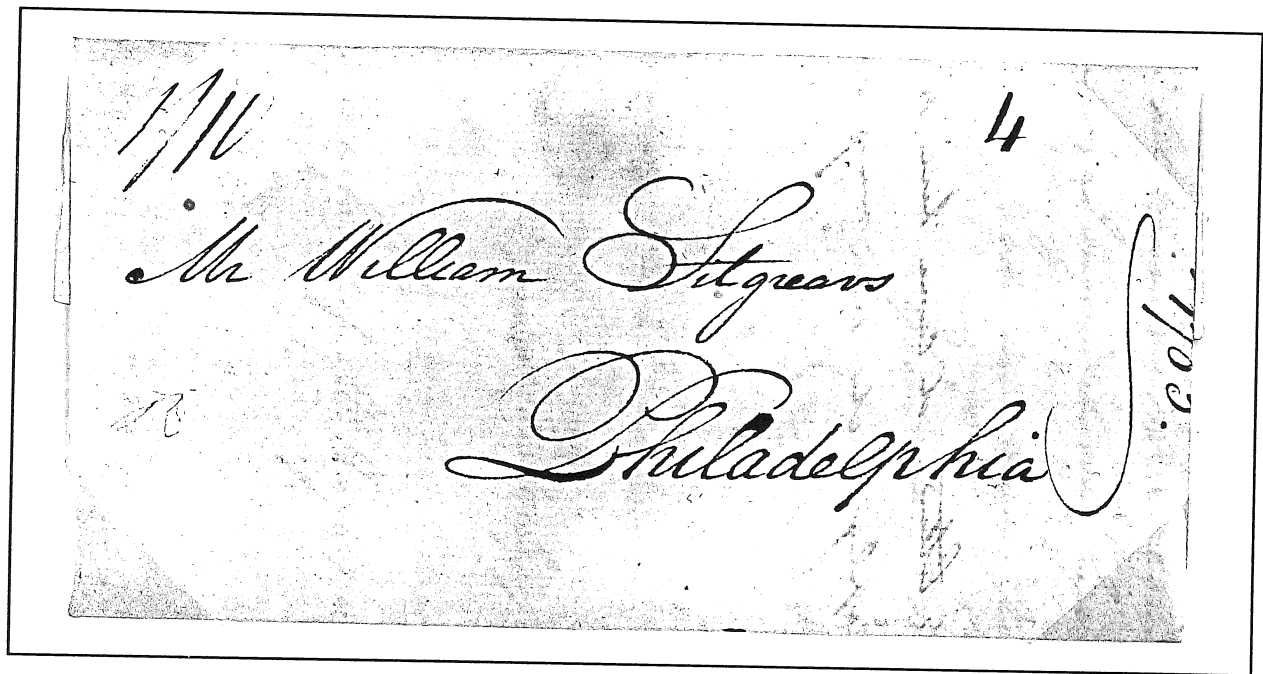 4
Mr William Sitgreavs
Philadelphia